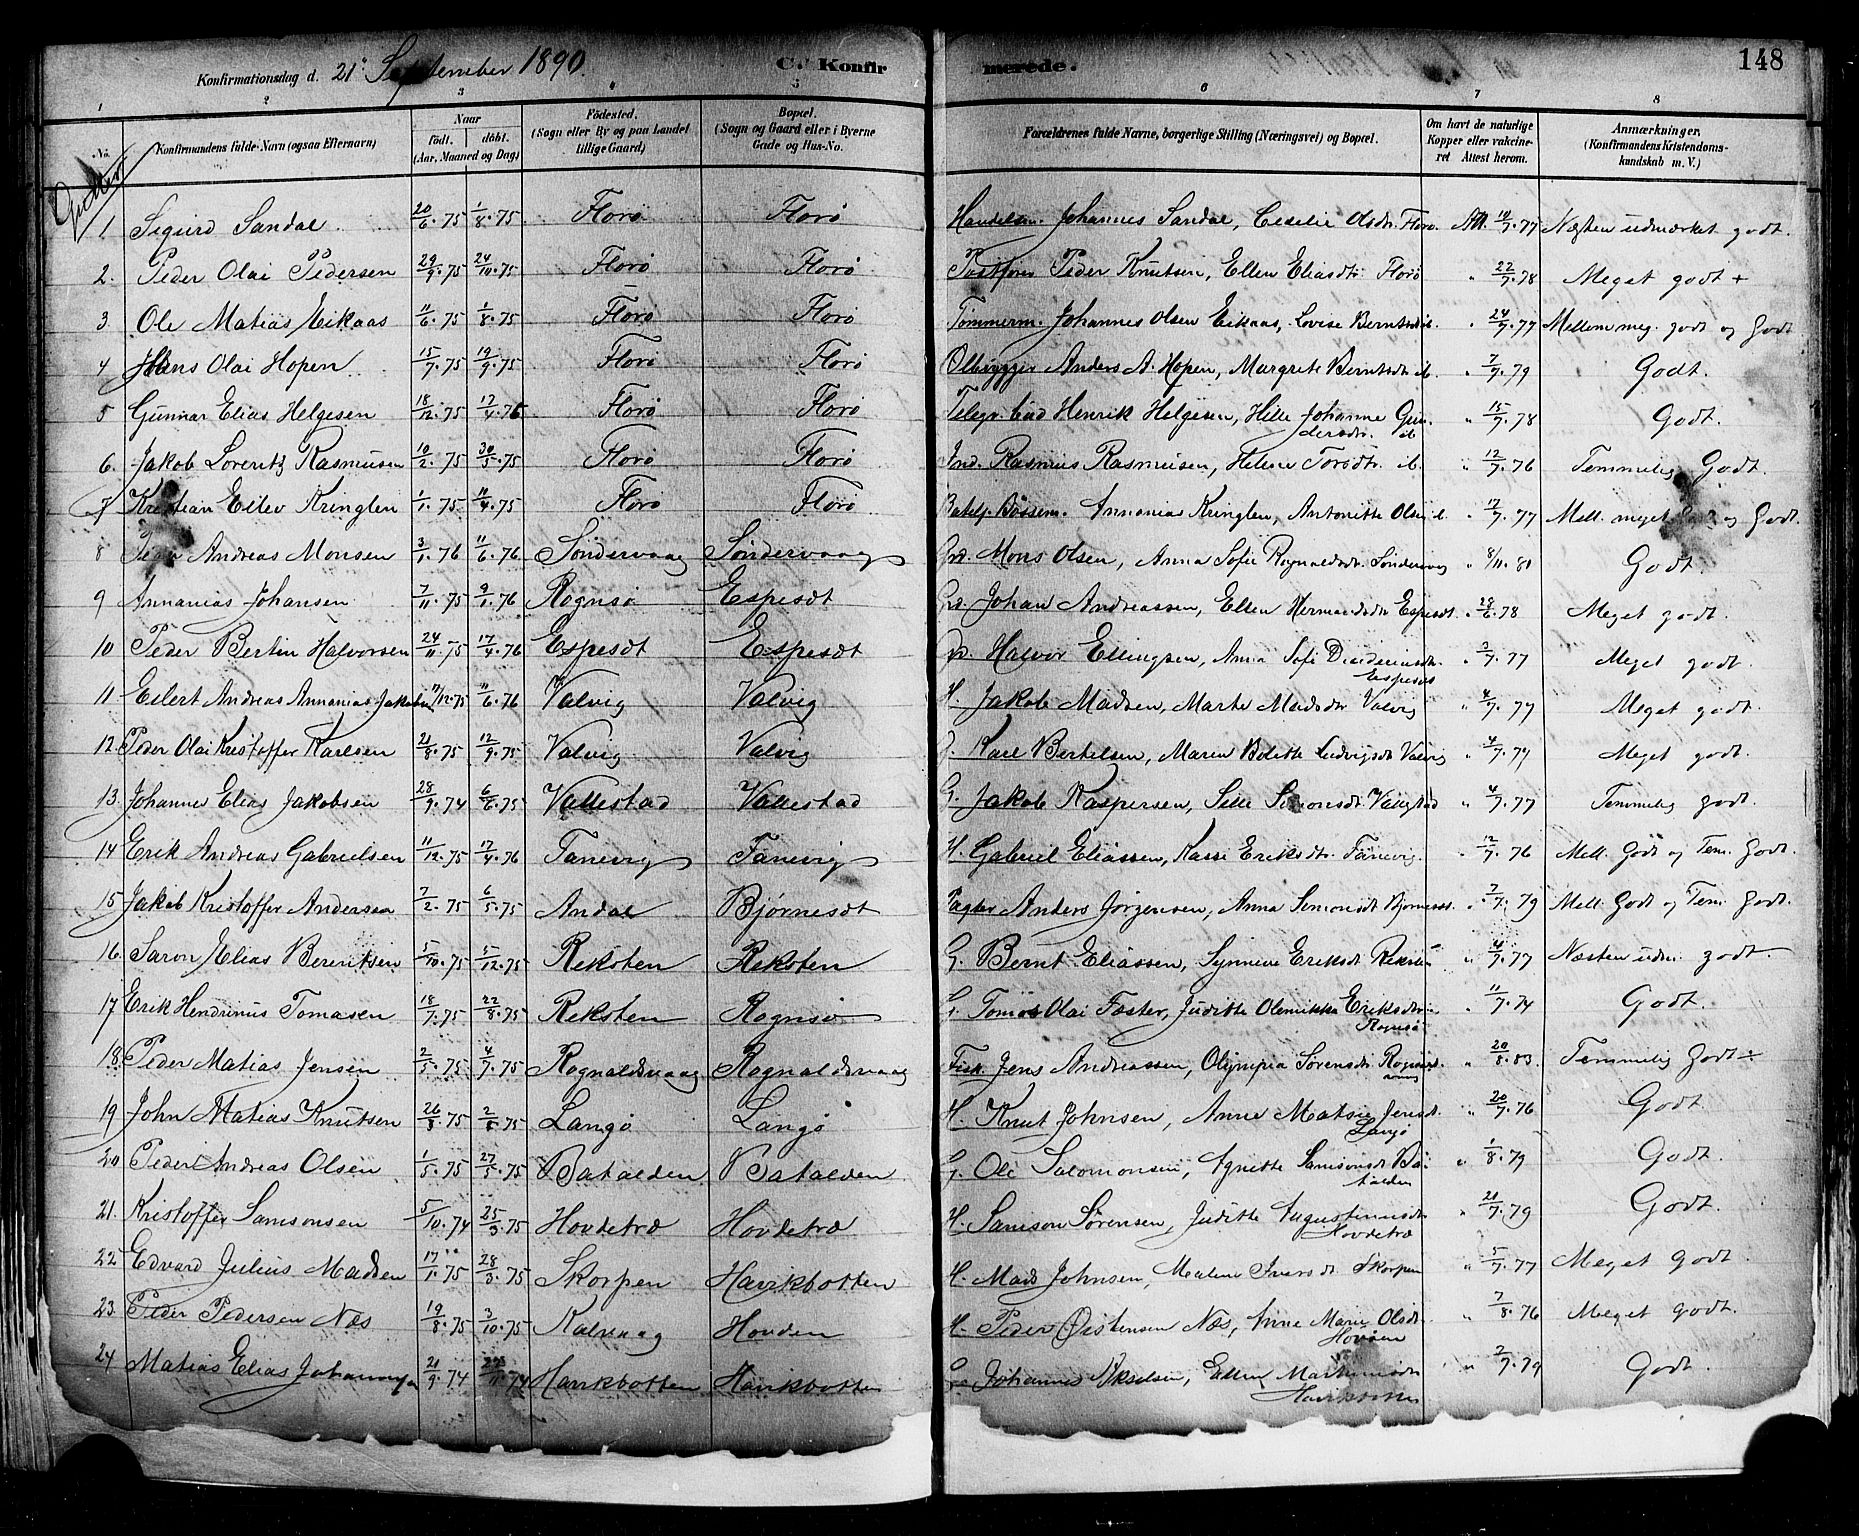 148
Konfirmationsdag d. 21. September 1890. C. Konfirmerede.
1 2 3 4 5 6 7 8
No. Konfirmandens fulde Navn (ogsaa Efternavn) Naar født. døbt. (Aar, Maaned og Dag) Fødested. (Sogn eller By og paa Landet tillige Gaard) Bopæl. (Sogn og Gaard eller i Byerne Gade og Hus-No. Forældrenes fulde Navne, borgerlige Stilling (Næringsvei) og Bopæl. Om havt de naturlige Kopper eller vakcineret Attest herom. Anmærkninger, (Konfirmandens Kristendomskundskab m. V.)
Gutter
1. Sigurd Sandal 20/6.75 1/8.75 Florø Florø Handelsm. Johannes Sandal, Cecilie Olsdtr. Florø. Att. 10/7.77 Næsten udmærket godt.
2. Peder Olai Pedersen 29/9.75 24/10.75 Florø Florø Postfører Peder Knutsen, Ellen Eliasdtr. Florø " 22/7.78 Meget godt +
3 Ole Matias Eikaas 11/6.75 1/8.75 Florø Florø Tømmerm. Johannes Olsen Eikaas, Lovise Berntsdtr ib. " 24/7.77 Mellem meg. godt og Godt
4 Hans Olai Hopen 15/7.75 19/9.75 Florø Florø Ølbrygger Anders A. Hopen, Margrete Berntsdtr ib. " 7/7.79 Godt.
5 Gunnar Elias Helgesen 18/12.75 17/4.76 Florø Florø Telegr. bud Henrik Helgesen, Helle Johanne Gundersdtr. ib " 15/7.78 Godt.
6. Jakob Lorentz Rasmussen 10/2.75 30/5.75 Florø Florø Ind. Rasmus Rasmussen, Helene Toresdtr. ib. " 12/7.76 Temmelig Godt.
7 Kristian Ellev Kringlen 1/1.75 11/4.75 Florø Florø Bøssem. Annanias Kringlen, Antonette Olsdtr ib. " 17/7.77 Mell. meget Godt og Godt.
8 Peder Andreas Monsen 3/1.76 11/6.76 Søndervaag Søndervaag Gd. Mons Olsen, Anna Sofie Rognaldsdtr. Søndervaag " 8/11.81 Godt.
9 Annanias Johansen 7/11.75 9/1.76 Rognsø Espesdt Gd. Johan Andreassen, Ellen Hermansdtr Espesdt. " 28/6.78 Meget godt.
10 Peder Bertin Halvorsen 24/11.75 17/4.76 Espesdt Espesdt Gd. Halvor Ellingsen, Anna Sofie Diederiksdtr. Espesdt " 3/7.77 Meget godt.
11 Eilert Andreas Annanias Jakobsen 11/12.75 11/6.76 Valvig Valvig H. Jakob Madsen, Marte Madsdtr Valvig " 4/7.77 Meget godt.
12. Peder Olai Kristoffer Karlsen 21/8.75 12/9.75 Valvig Valvig Karl Bertelsen, Maren Bolette Ludvigsdt Valvig " 4/7.77 Meget godt.
13. Johannes Elias Jakobsen 28/9.74 6/6.75 Vallestad Vallestad G. Jakob Kaspersen, Sille Simonsdt. Vallestad " 4/7.77 Temmelig godt.
14 Erik Andreas Gabrielsen 11/12.75 17/4.76 Fanevig Fanevig H. Gabriel Eliassen, Kasse Eriksdtr. Fanevig. " 12/7.76 Mell. Godt og Tem. Godt.
15 Jakob Kristoffer Andersen 7/2.75 6/5.75 Andal Bjørnesdt Anders Jørgensen, Anna Simonsdt Bjørnesdt. " 7/7.79 Mell. Godt og Tem. Godt.
16. Saron Elias Berentsen 5/10.75 5/12.75 Reksten Reksten G. Bernt Eliassen, Synneve Eriksdt Reksten " 4/7.77 Næsten udm. godt.
17 Erik Hendrinus Tomasen 18/7.75 22/8.75 Reksten Rognsø G. Tomas Olai Fæster, Juditte Olenikka Eriksdtr. Rognsø " 11/7.74 Godt.
18. Peder Matias Jensen 2/5.75 4/7.75 Rognaldsvaag Rognaldsvaag Fisk. Jens Andreassen, Olympia Sørensdtr. " 20/8.83. Temmelig Godt ÷
19 John Matias Knutsen 26/3.75 2/5.75 Langø Langø H. Knut Johnsen, Anne Matsie Jensdt. Langø " 20/7.76 Godt.
20 Peder Andreas Olsen 1/5.75 27/5.75 Batalden Batalden G. Ole Salomonsen, Agnette Samsonsdt Batalden " 1/8.79 Godt.
21. Kristoffer Samsonsen 5/10.74 25/3.75 Hovdetræ Hovdetræ H. Samson Sørensen, Juditte Augustinusdt Hovdetræ " 21/7.79 Godt.
22 Edvard Julius Madsen 17/1.75 28/3.75 Skorpen Havikbotten H. Mads Johnsen, Malene Iversdt Skorpen " 5/7.77 Meget Godt.
23. Peder Pedersen Næs 19/8.75 3/10.75 Kalvaag Hovden H. Peder Øistensen Næs, Anne Marie Olsdt. Hovden " 7/8.76 Meget godt.
24 Matias Elias Johannesen 21/9.74 Havikbotten Havikbotten G. Johannes Akselsen, Ellen Martinusdt Havikbotten " 2/7.79 Godt.